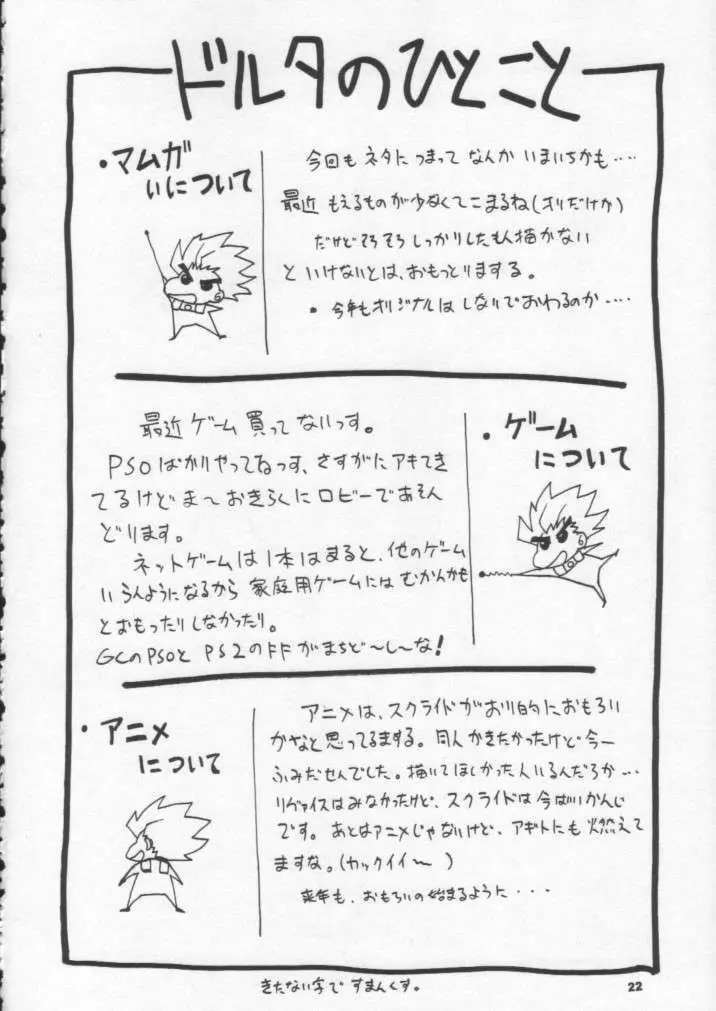 ドルタのひとこと
・マムガ
いについて
今回も ネタに つまって なんか いまいちかも‥‥
最近 もえるものが少なくて こまるね(オリだけか)
だけど そろそろ しっかりしたもん描かない
と いけないとは、おもっとりまする。
・今年もオリジナルは しないでおわるのか‥‥
・ゲーム
について
最近 ゲーム 買って ないっす。
PSO ばかりやってるっす、さすがに アキてき
てるけど ま〜 おきらくに ロビーで あそん
どります。
ネットゲームは 1本はまると、他のゲーム
いらんようになるから 家庭用ゲームには むかんかも
とおもったり しなかったり。
GCのPSOと PS2のFFがまちど〜し〜な!
・アニメ
について
アニメは、スクライドがおり的におもろい
かなと思ってるまする。同人かきたかったけど今一
ふみだせんでした。描いてほしかった人いるんだろか…
リヴァイスはみなかったけど、スクライドは今ばいかんじ
です。あとはアニメじゃないけど、アギトにも 燃えて
ますな。(カックイイ〜)
来年も、おもろいの始まるように・・・
きたない字で すまんくす。
22